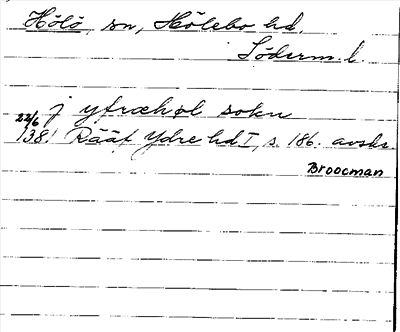 Hölö, sn, Hölebo hd.
Söderm. l.
j yfræhøl sokn
22/6
1381 Rääf Ydre hd I, s. 186. avskr.
Broocman